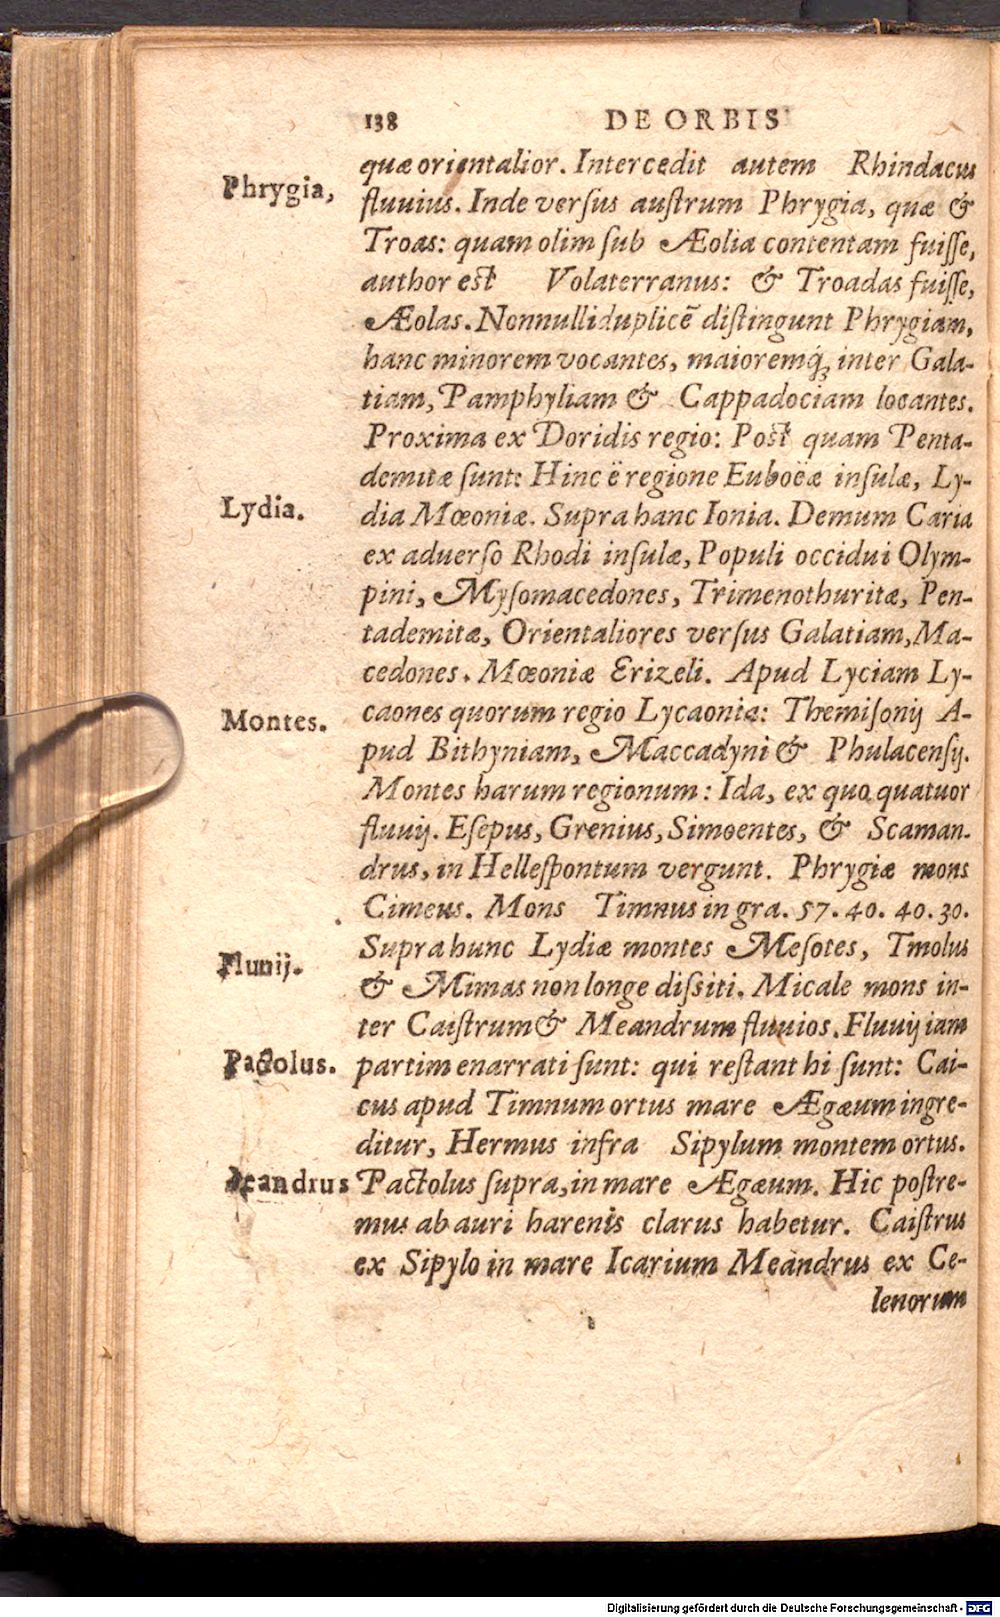 138 DE ORBIS
quæ orientalior. Intercedit autem Rhindacus
Phrygia,
fluuius. Inde verſus auſtrum Phrygia, quæ &
Troas: quam olim ſub Æolia contentam fuiſſe,
author est Volaterranus: & Troadas fuiſſe,
Æolas. Nonnulli duplicē diſtingunt Phrygiam,
hanc minorem vocantes, maioremq́; inter Gala-
tiam, Pamphyliam & Cappadociam locantes.
Proxima ex Doridis regio: Post quam Penta-
demitæ ſunt: Hinc ë regione Euboëæ inſulæ, Ly-
Lydia.
dia Mœoniæ. Supra hanc Ionia. Demum Caria
ex aduerſo Rhodi inſulæ, Populi occidui Olym-
pini, Myſomacedones, Trimenothuritæ, Pen-
tademitæ, Orientaliores verſus Galatiam, Ma-
cedones. Mœoniæ Erizeli. Apud Lyciam Ly-
Montes.
caones quorum regio Lycaonia: Themiſonij A-
pud Bithyniam, Maccadyni & Phulacenſij.
Montes harum regionum: Ida, ex quo quatuor
fluuij. Eſepus, Grenius, Simoentes, & Scaman-
drus, in Helleſpontum vergunt. Phrygiæ mons
Cimeus. Mons Timnus in gra. 57. 40. 40. 30.
Supra hunc Lydiæ montes Meſotes, Tmolus
Fluuij.
& Mimas non longe diſsiti. Micale mons in-
ter Caiſtrum & Meandrum fluuios. Fluuij iam
Pactolus.
partim enarrati ſunt: qui reſtant hi ſunt: Cai-
cus apud Timnum ortus mare Ægæum ingre-
ditur, Hermus infra Sipylum montem ortus.
Meandrus
Pactolus ſupra, in mare Ægæum. Hic poſtre-
mus ab auri harenis clarus habetur. Caiſtrus
ex Sipylo in mare Icarium Meandrus ex Ce-
lenorum
Digitalisierung gefördert durch die Deutsche Forschungsgemeinschaft - DFG